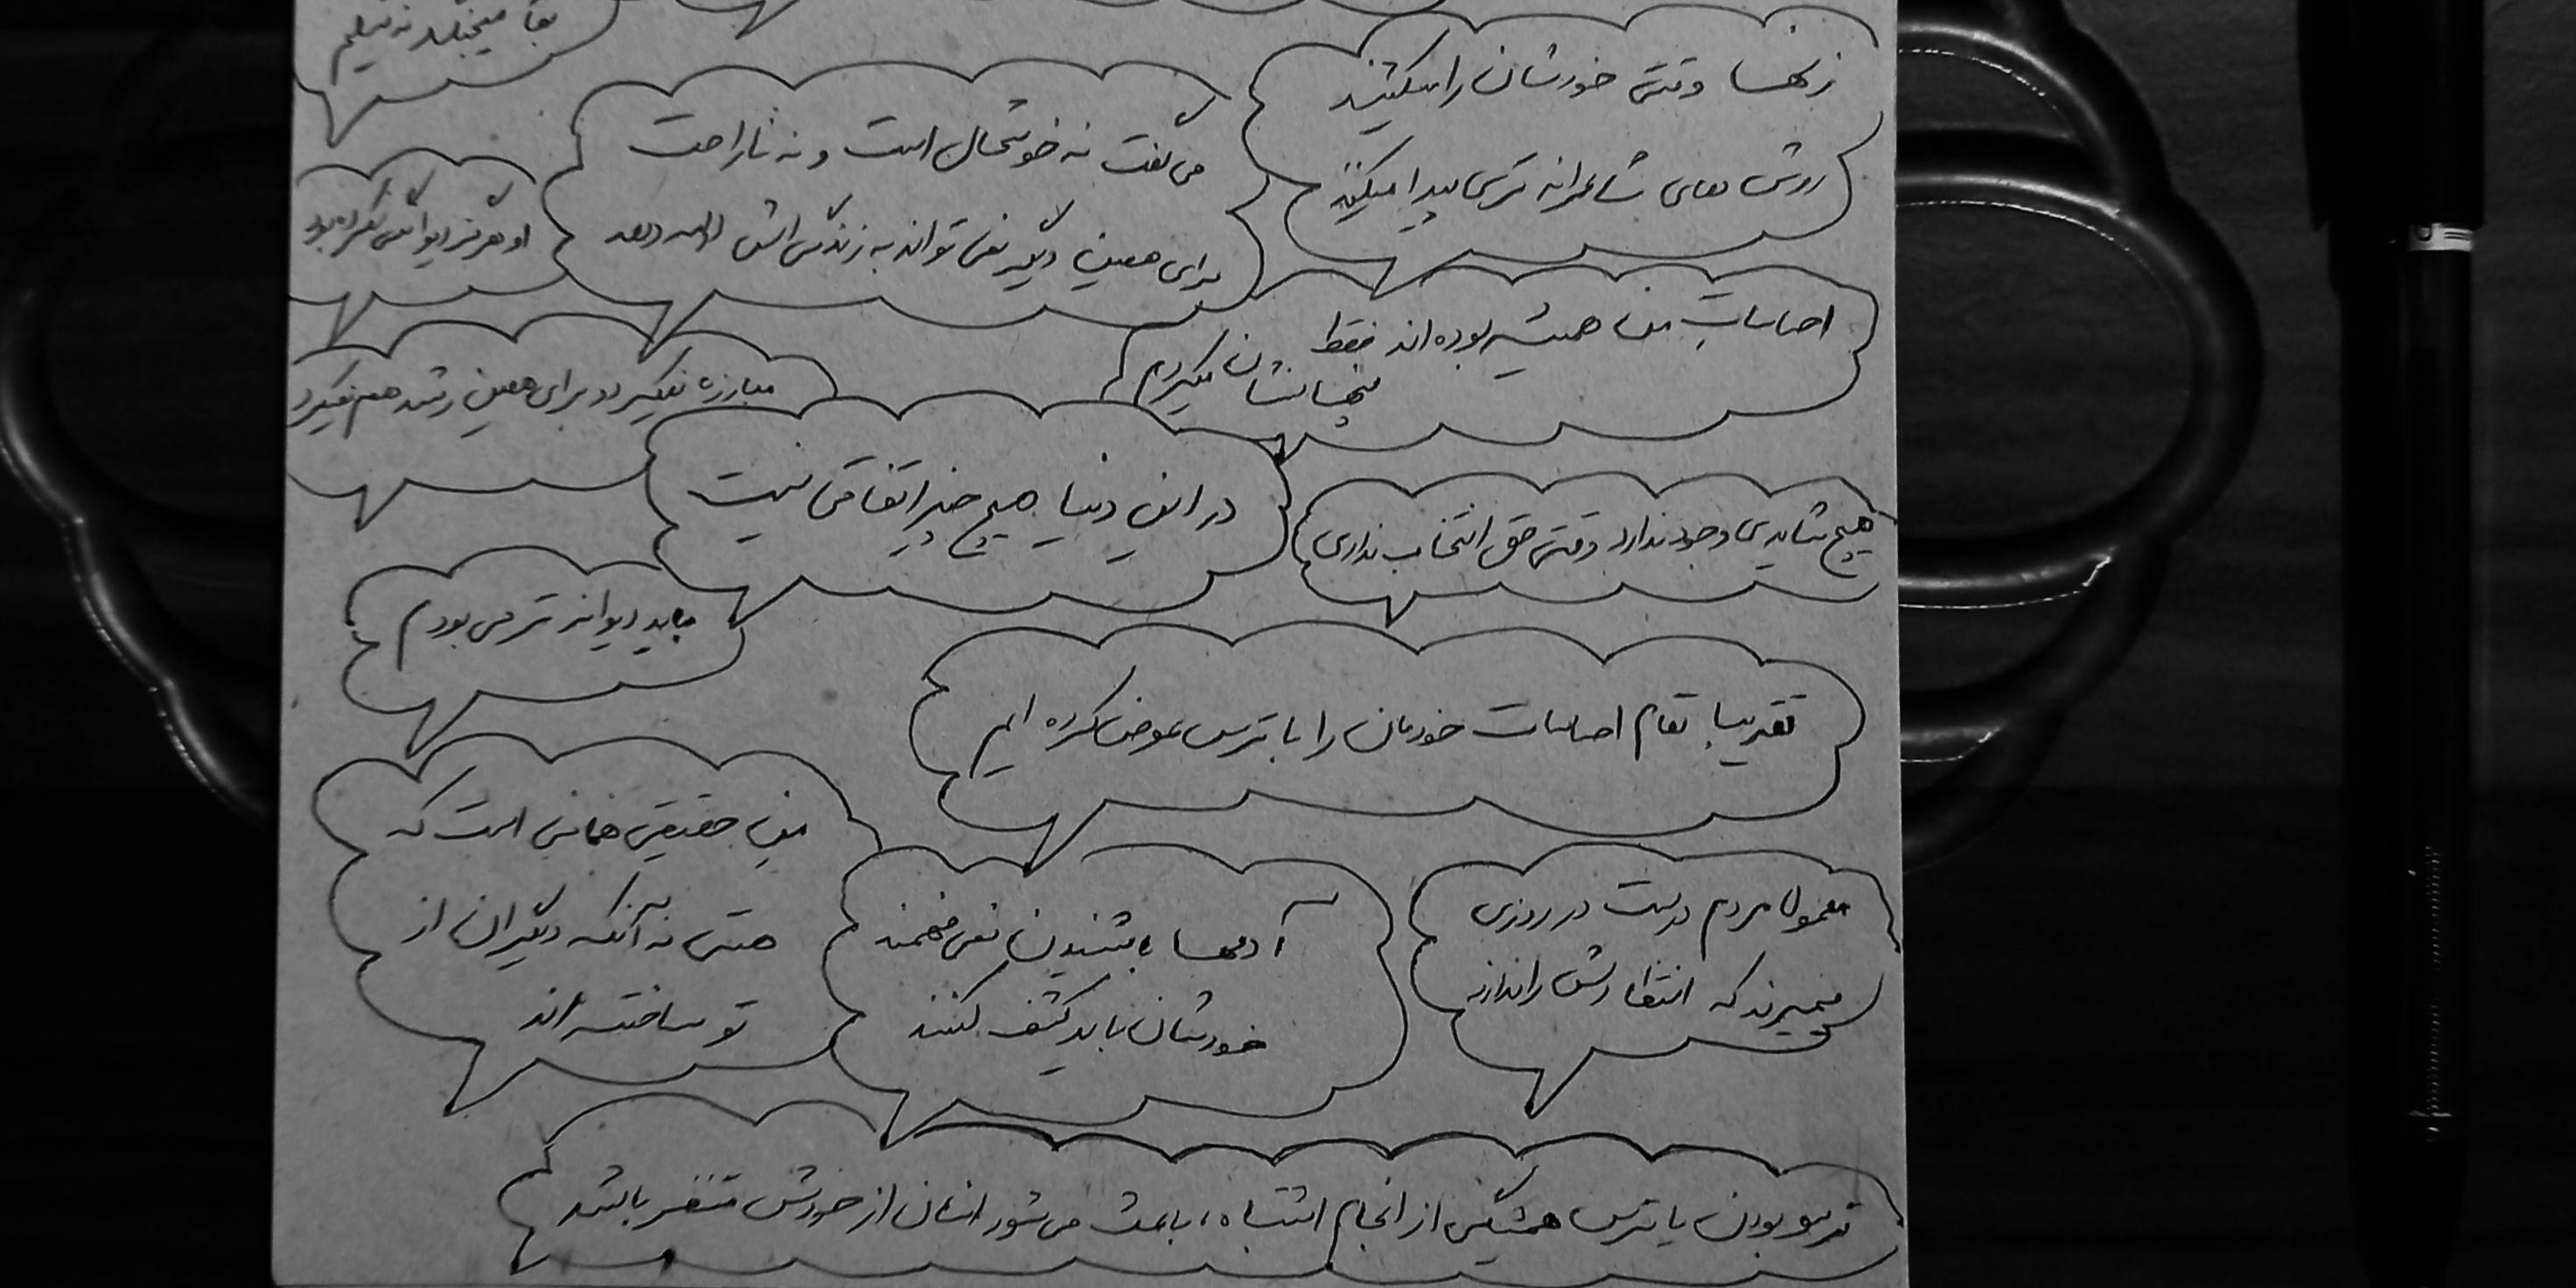 زنها وقتی خودشان را میکشند
روش های شاعرانه تری پیدا میکنند
می گفت نه خوشحال است و نه ناراحت
برای همین دیگر نمی تواند به زندگی اش ادامه دهد
او هرگز دیوانگی نکرده بود
احساساتِ من همیشه بوده اند فقط
پنهانشان میکردم
مبارزه نمیکرد و برای همین رشد هم نمیکرد
در این دنیا هیچ چیز اتفاقی نیست
هیچ شایدی وجود ندارد وقتی حق انتخاب نداری
باید دیوانه تر می بودم
تقریبا تمام احساسات خودمان را با ترس عوض کرده ایم
منِ حقیقی همانی است که
هستی نه آنکه دیگران از
تو ساخته اند
آدمها با شنیدن نمی فهمند
خودشان باید کشف کنند
معمولا مردم درست در روزی
میمیرند که انتظارش را ندارند
ترسو بودن یا ترس همیشگی از انجام اشتباه، باعث می شود انسان از خودش متنفر باشد